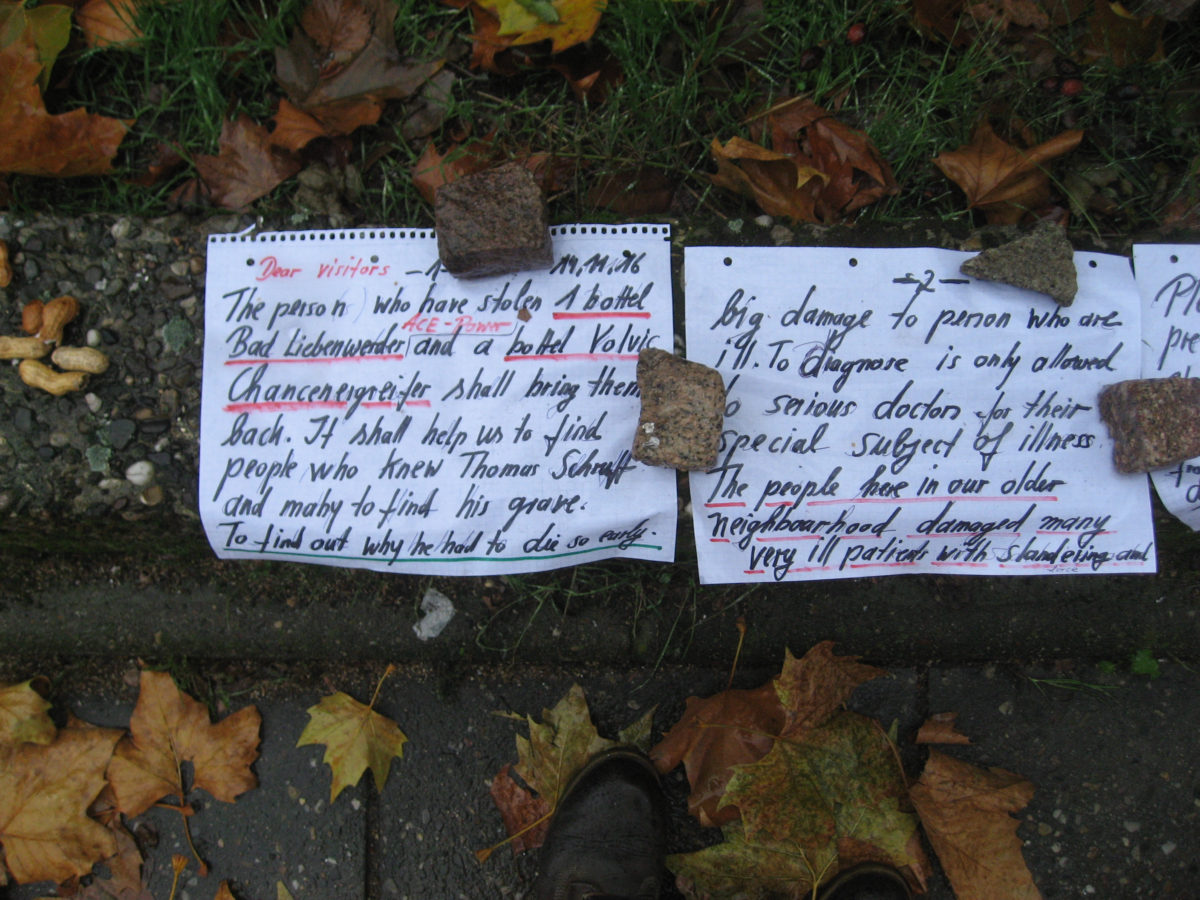 Dear visitors -1 14.11.16
The person who have stolen 1 bottel
ACE-Power
Bad Liebenwerder and a bottel Volvic
Chancenergreifer shall bring them
back. It shall help us to find
people who knew Thomas
and maby to find his grave.
To find out why he had to die so early.
-2-
big damage to person who are
ill. To diagnose is only allowed
serious doctors for their
special subject of illness.
The people here in our older
neighbourhood damaged many
very ill patients with slandering and
force